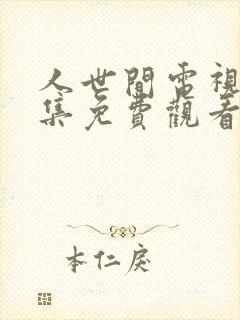 人世間電視
集免費觀看
本仁戾